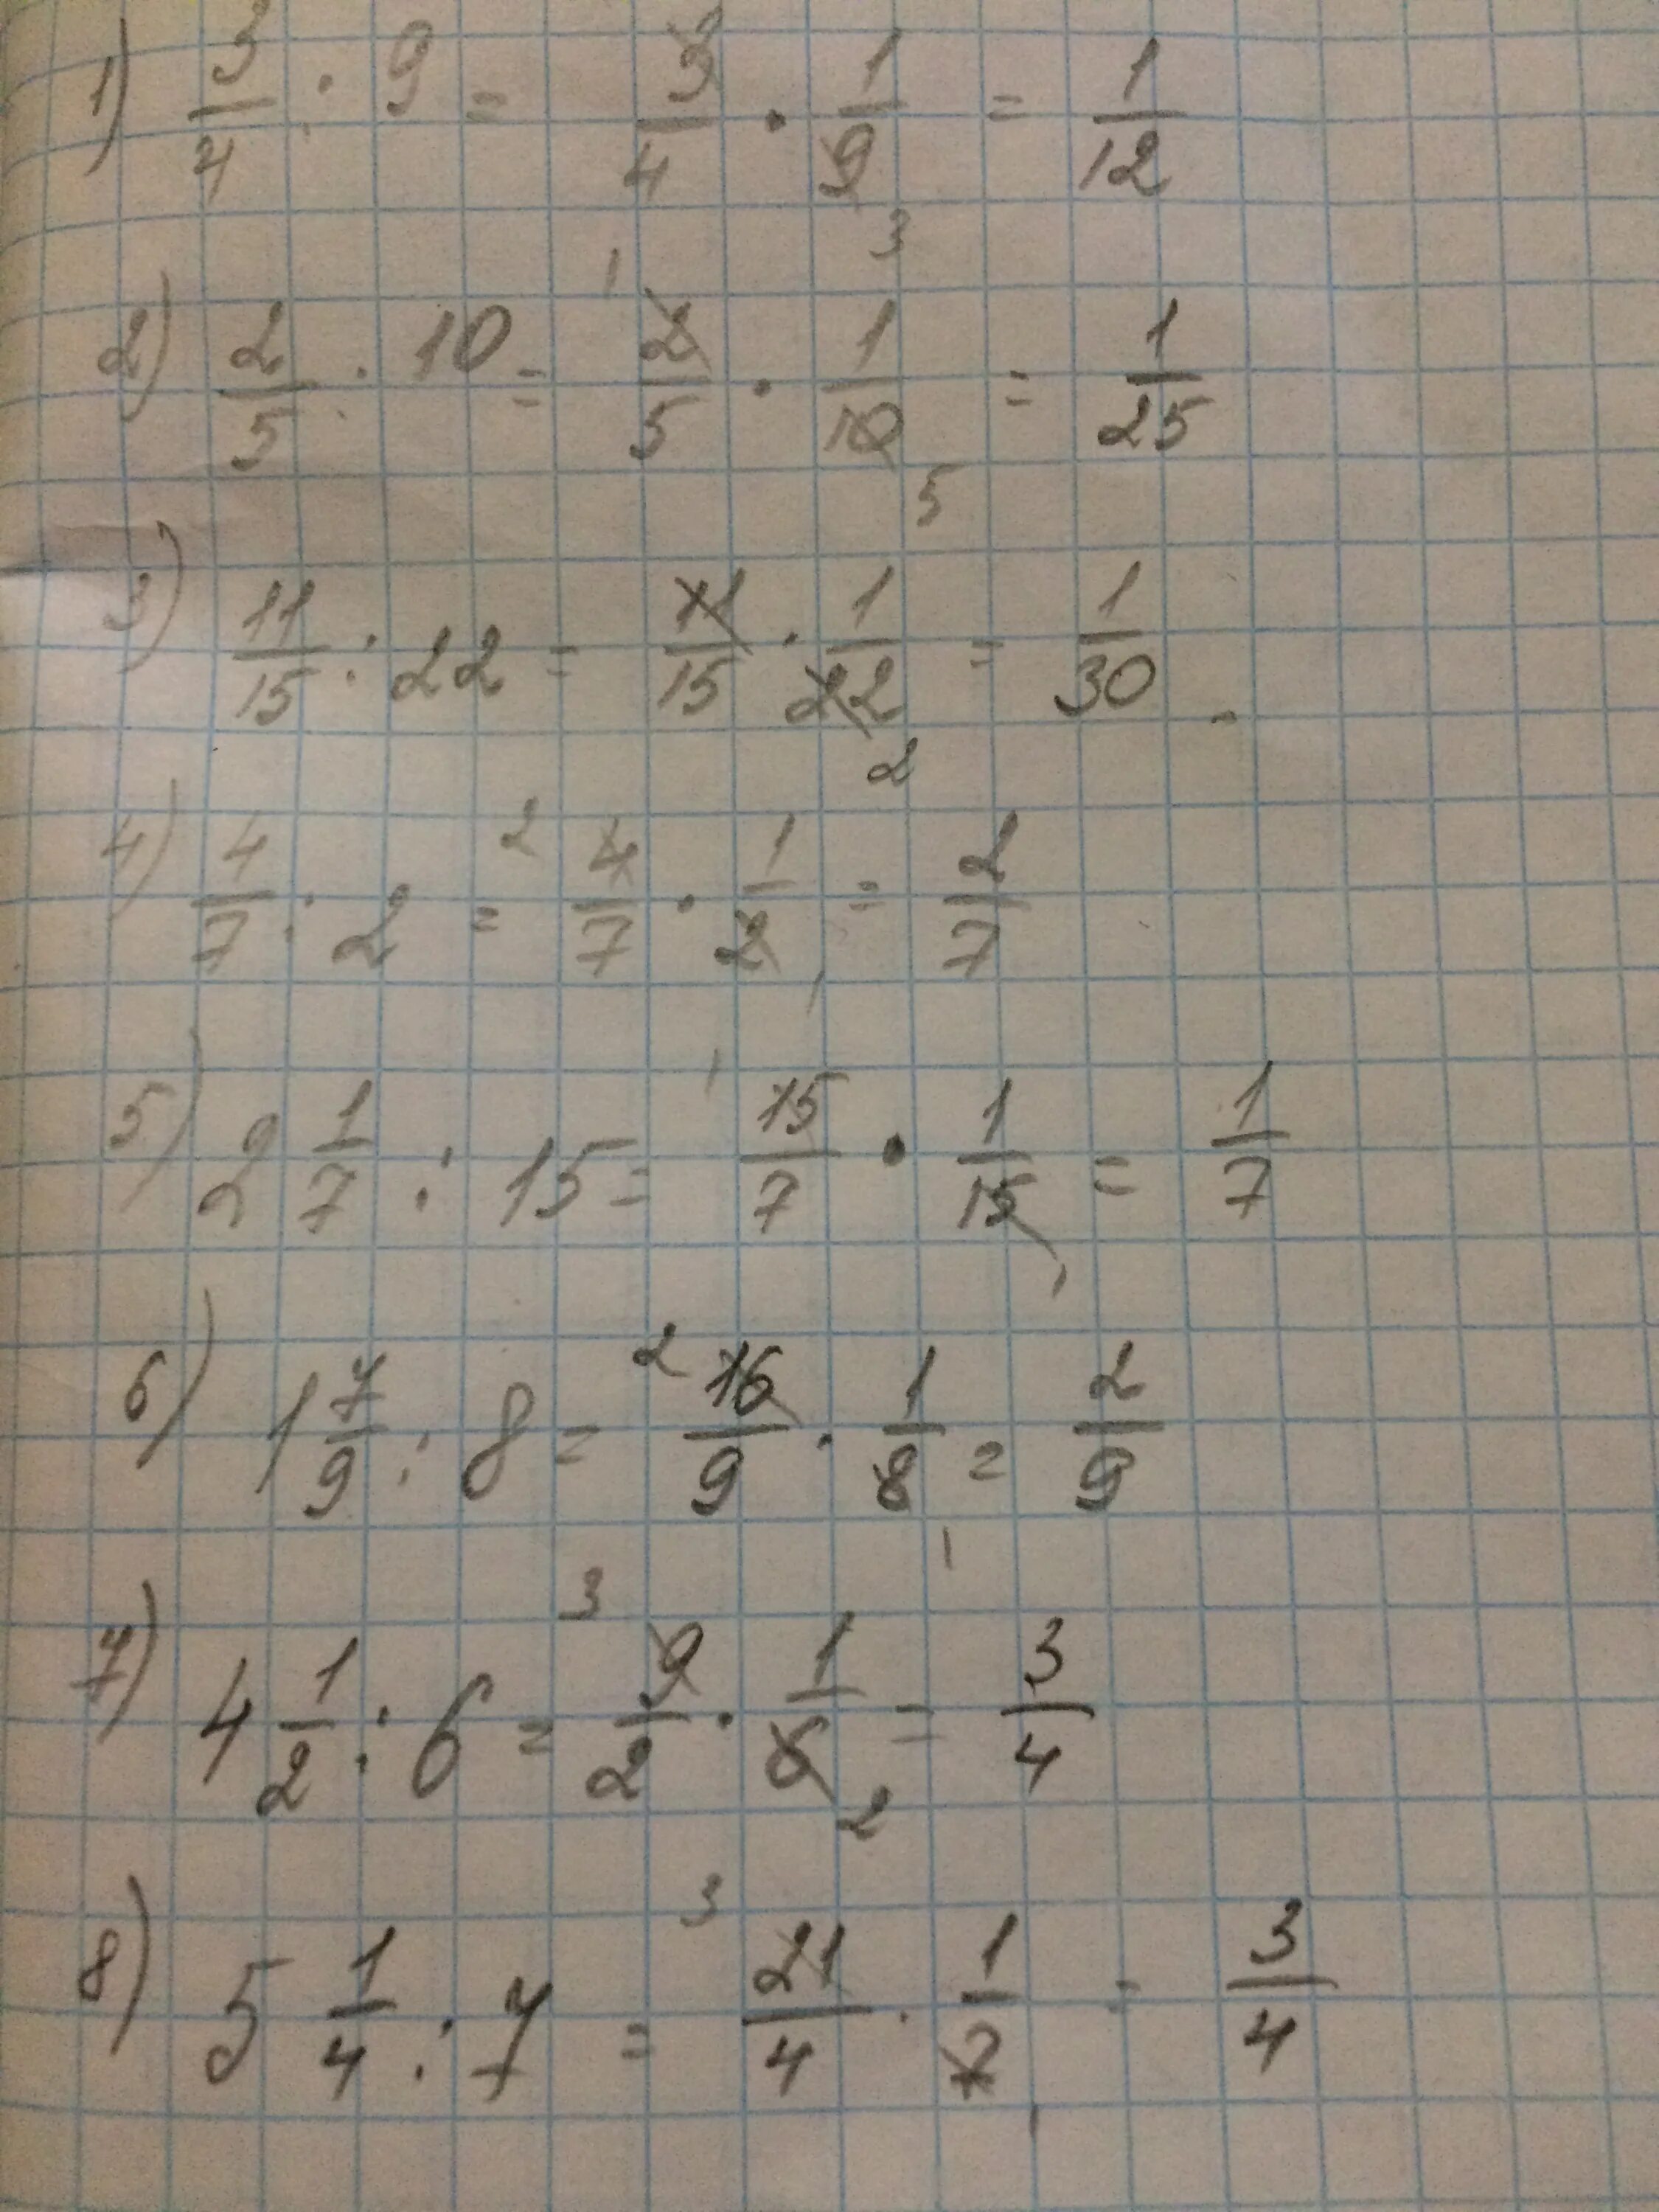 1) 3/4 : 9 = 3/4 · 1/9 3 = 1/12
2) 2/5 : 10 = 1 2/5 · 1/10 5 = 1/25
3) 11/15 : 22 = 11/15 · 1/22 2 = 1/30
4) 4/7 : 2 = 2 4/7 · 1/2 1 = 2/7
5) 2 1/7 : 15 = 1 15/7 · 1/15 1 = 1/7
6) 1 7/9 : 8 = 2 16/9 · 1/8 1 = 2/9
7) 4 1/2 : 6 = 3 9/2 · 1/6 2 = 3/4
8) 5 1/4 : 7 = 3 21/4 · 1/7 1 = 3/4